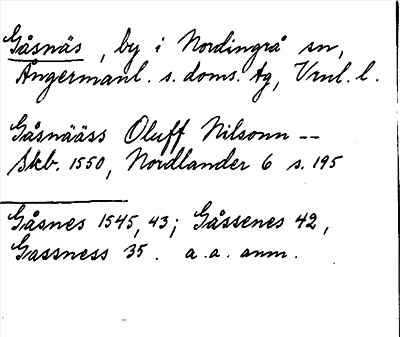 Gåsnäs, by i Nordingrå sn,
Ångermanl. s. doms. tg, Vrnl. l.
Gåsnääss Oluff Nilsonn --
Skb. 1550, Nordlander 6 s. 195
Gåsnes 1545, 43; Gåssenes 42,
Gassness 35. a. a. anm.